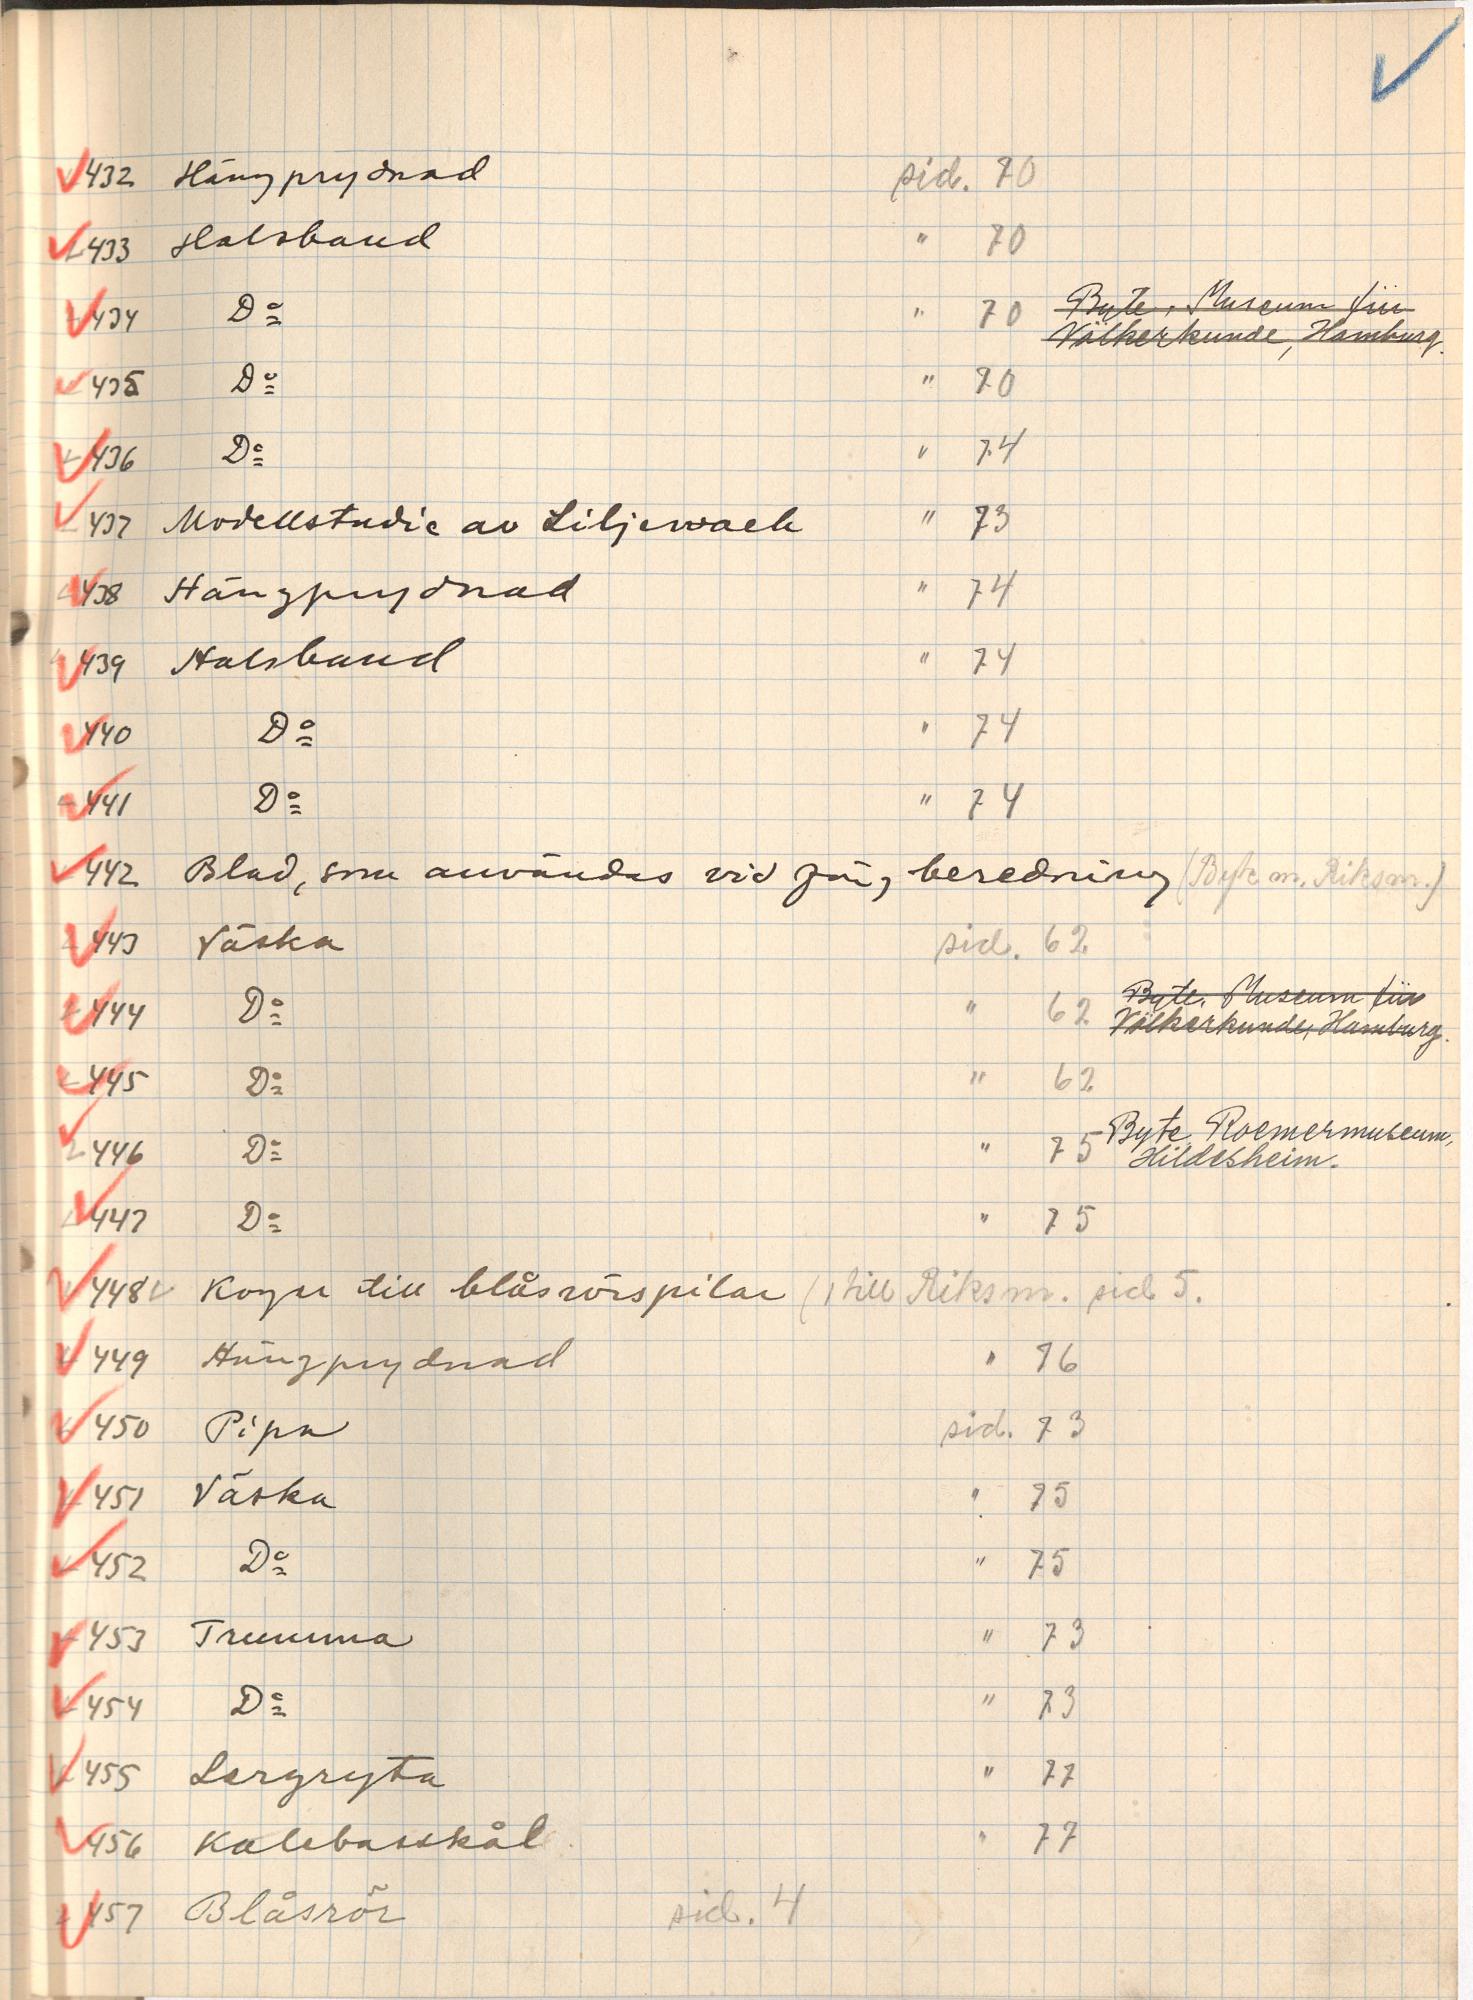 432 Hängprydnad sid. 70
433 Halsband " 70
434 Do " 70 Byte, Museum für
Völkerkunde, Hamburg.
435 Do " 70
436 Do " 74
437 Modellstudie av Liljewach " 73
438 Hängprydnad " 74
439 Halsband " 74
440 Do " 74
441 Do " 74
442 Blad, som användas vid beredning (Byte m. Riksm.)
443 Väska sid. 62
444 Do " 62 Byte, Museum für
Völkerkunde, Hamburg.
445 Do " 62
446 Do " 75 Byte Roemermuseum,
Hildesheim.
447 Do " 75
448 Koger till blåsrörspilar (1 till Riksm. sid 5.
449 Hängprydnad " 76
450 Pipa sid. 73
451 Väska " 75
452 Do " 75
453 Trumma " 73
454 Do " 73
455 Lergryta " 77
456 Kalebasskål " 77
457 Blåsrör sid. 4